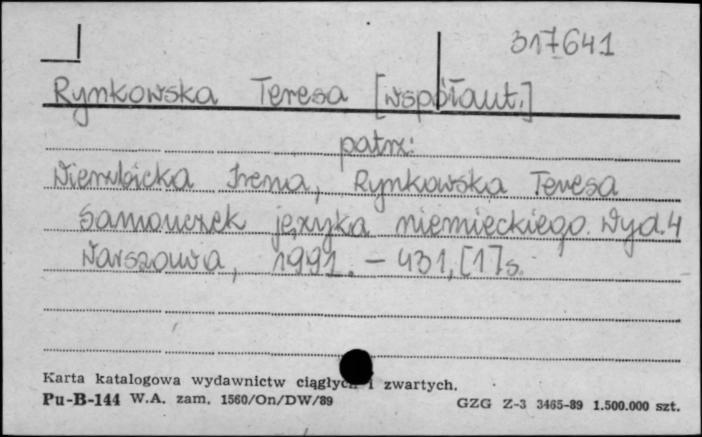 317641
Rynkowska Teresa [współaut.]
patrz:
Wierzbicka Irena, Rynkowska Teresa
Samouczek języka niemieckiego. Wyd. 4
Warszawa, 1991. - 431, [1] s.
Karta katalogowa wydawnictw ciągłych i zwartych.
Pu-B-144 W.A. zam. 1560/On/DW/89 GZG Z-3 3465-89 1.500.000 szt.